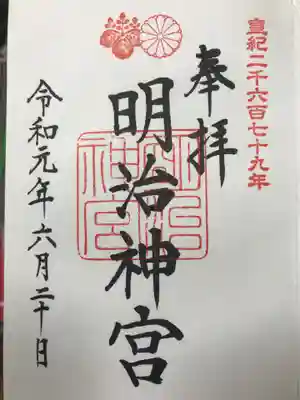 皇紀二千六百七十九年
奉拝
明治神宮
令和元年六月二十日
明治神宮